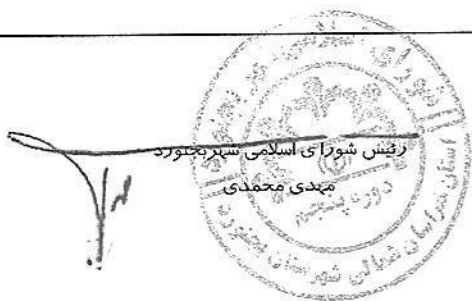 رئیس شورای اسلامی شهر بجنورد
مهدی محمدی
شورای اسلامی شهر بجنورد
دوره پنجم
استان خراسان شمالی شهرستان بجنورد